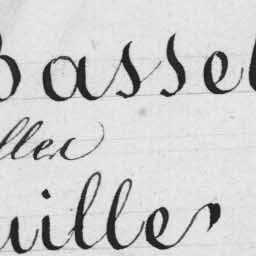 Bassel
ller
uiller